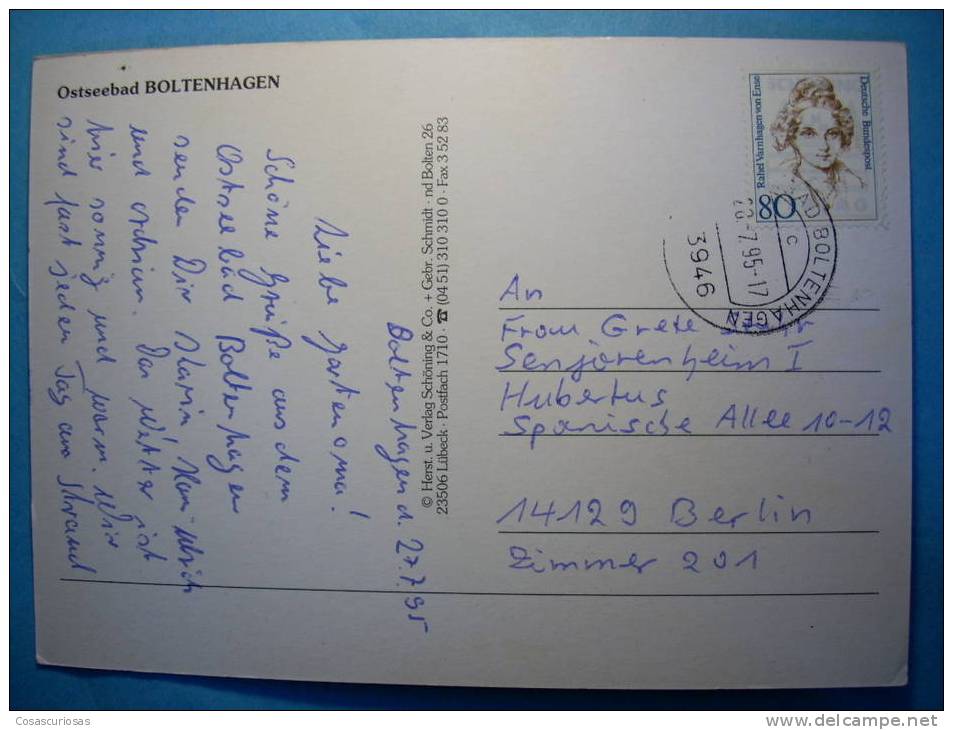 Ostseebad BOLTENHAGEN
Boltenhagen d. 27.7.95
Liebe Gartenoma!
Schöne Grüße aus dem
Ostseebad Boltenhagen
senden Dir Karin
und Adrian. Das Wetter ist
hier sonnig und warm. Wir
sind fast jeden Tag am Strand
© Herst. u. Verlag Schöning & Co. + Gebr. Schmidt · nd Bolten 26
23506 Lübeck · Postfach 1710 · ☎ (04 51) 310 310 0 · Fax 3 52 83
Deutsche Bundespost
Rahel Varnhagen von Ense
80
BOLTENHAGEN
c
-7.95-17
3946
An
Frau Grete
Senjorenheim I
Hubertus
Spanische Allee 10-12
14129 Berlin
Zimmer 201
Cosascuriosas
www.delcampe.net